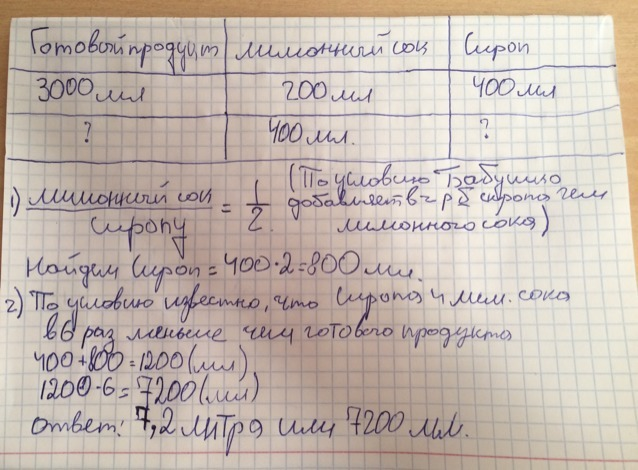 Готовый продукт лимонный сок Сироп
3000 мл 200 мл 400 мл
? 400 мл. ?
1) лимонный сок / сиропу = 1/2. (По условию Бабушка
добавляет в 2 р б сиропа чем
лимонного сока)
Найдем Сироп = 400·2=800 мл.
2) По условию известно, что Сиропа и лим. сока
в 6 раз меньше чем готового продукта
400+800=1200 (мл)
1200·6=7200 (мл)
Ответ: 7,2 литра или 7200 мл.